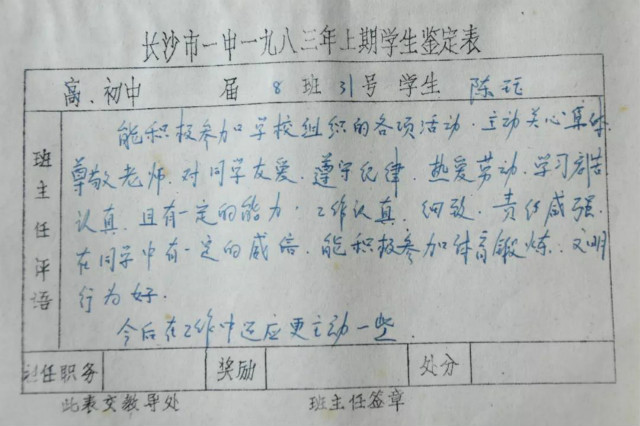 长沙市一中一九八三年上期学生鉴定表
高.初中 届 8 班 31 号 学生 陈
班主任评语
能积极参加学校组织的各项活动.主动关心集体.
尊敬老师.对同学友爱.遵守纪律.热爱劳动.学习刻苦
认真.且有一定的能力.工作认真.细致.责任感强.
在同学中有一定的威信.能积极参加体育锻炼.文明
行为好.
今后在工作中还应更主动一些.
担任职务 奖励 处分
此表交教导处 班主任签章